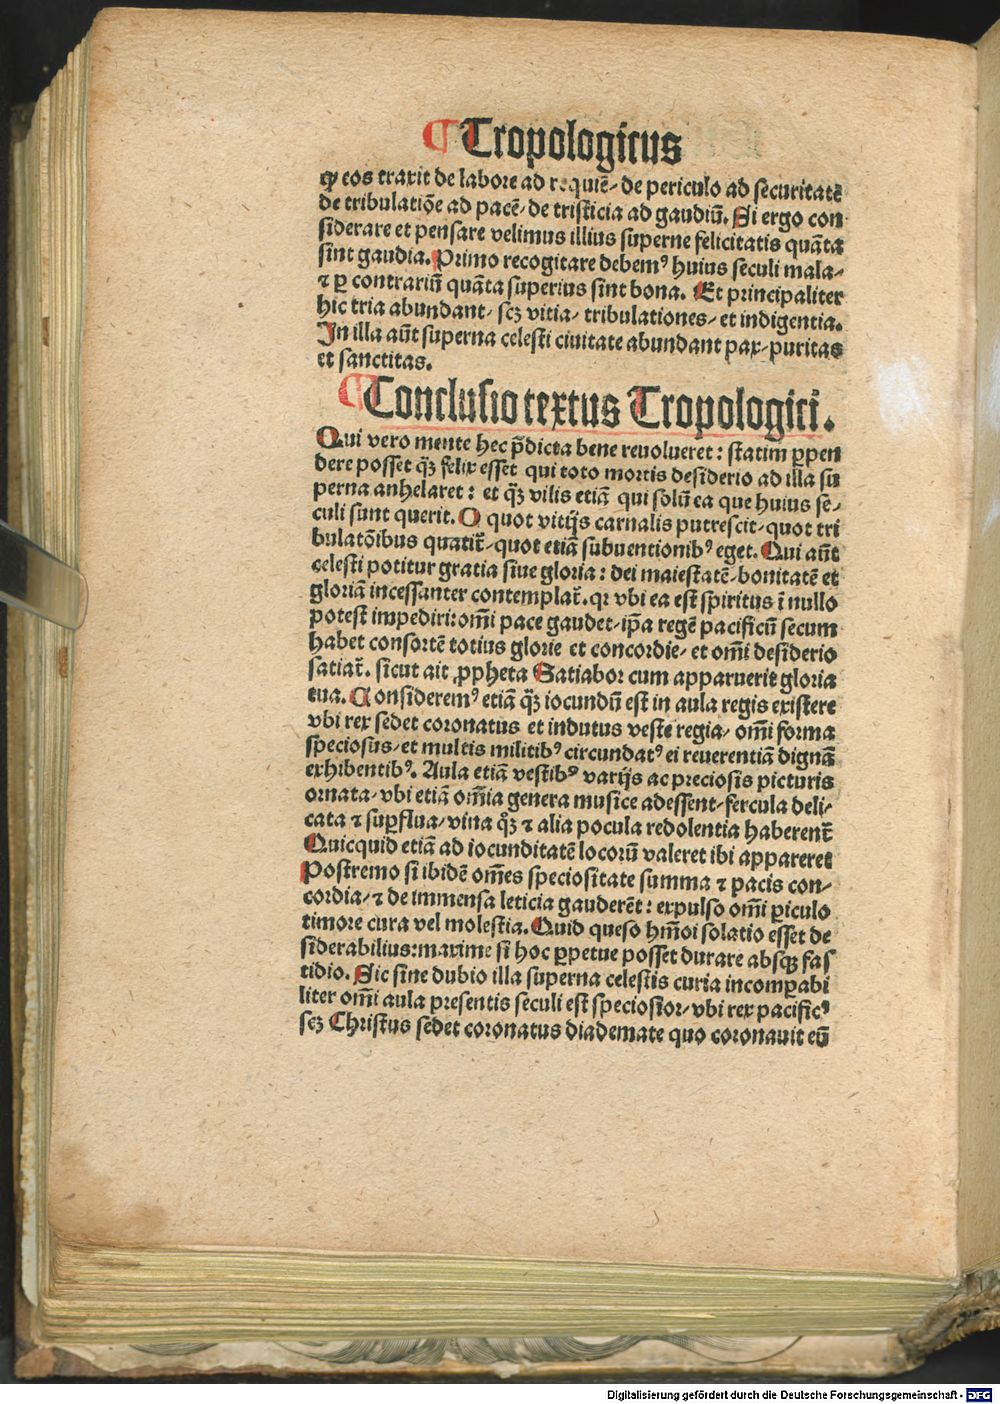 ¶ Tropologicus
ꝙ eos traxit de labore ad requiē, de periculo ad securitatē
de tribulatiōe ad pacē, de tristicia ad gaudiū. Si ergo con
siderare et pensare velimus illius superne felicitatis quāta
sint gaudia. Primo recogitare debemꝰ huius seculi mala,
⁊ ꝑ contrariū quāta superius sint bona. Et principaliter
hic tria abundant, scꝫ vitia, tribulationes, et indigentia.
In illa aūt superna celesti ciuitate abundant pax, puritas
et sanctitas.
¶ Conclusio textus Tropologici.
Qui vero mente hec p̄dicta bene reuolueret : statim ꝑpen
dere posset qꝫ̄ felix esset qui toto mortis desiderio ad illa su
perna anhelaret : et qꝫ̄ vilis etiā qui solū ea que huius se,
culi sunt querit. O quot vitijs carnalis putrescit, quot tri
bulatōibus quatit̄, quot etiā subuentionibꝰ eget. Qui aūt
celesti potitur gratia siue gloria : dei maiestatē, bonitatē et
gloriā incessanter contemplat̄. qꝛ vbi ea est spiritus ī nullo
potest impediri: om̄i pace gaudet, ip̄a regē pacificū secum
habet consortē totius glorie et concordie, et om̄i desiderio
satiat̄. sicut ait ꝓpheta Satiabor cum apparuerit gloria
tua. Consideremꝰ etiā qꝫ̄ iocundū est in aula regis existere
vbi rex sedet coronatus et indutus veste regia, om̄i forma
speciosus, et multis militibꝰ circundatꝰ ei reuerentiā dignā
exhibentibꝰ. Aula etiā vestibꝰ varijs ac preciosis picturis
ornata, vbi etiā om̄ia genera musice adessent, fercula deli,
cata ⁊ suꝑflua, vina qͦꝫ ⁊ alia pocula redolentia haberent̄
Quicquid etiā ad iocunditatē locorū valeret ibi appareret
Postremo si ibidē om̄es speciositate summa ⁊ pacis con,
cordia, ⁊ de immensa leticia gauderēt : expulso om̄i ꝑiculo
timore cura vel molestia. Quid queso hm̄oi solatio esset de
siderabilius: maxime si hoc ꝑpetue posset durare absqꝫ fas
tidio. Sic sine dubio illa superna celestis curia incomꝑabi
liter om̄i aula presentis seculi est speciosior, vbi rex pacificꝰ
scꝫ Christus sedet coronatus diademate quo coronauit eū
Digitalisierung gefördert durch die Deutsche Forschungsgemeinschaft - DFG